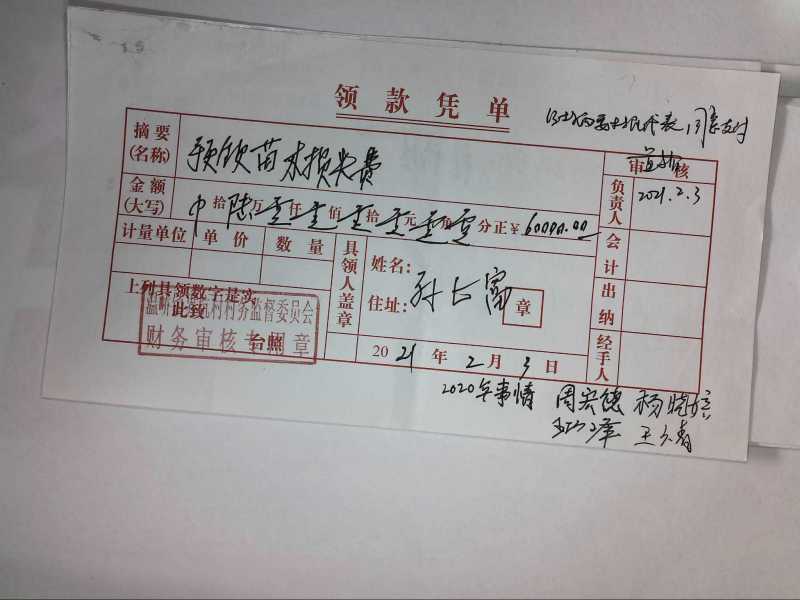 领款凭单
同意支付
摘要(名称) 预领苗木损失费
审核
2021.2.3
金额(大写) 拾陆万零仟零佰零拾零元零角零分正￥60000.00
负责人
计量单位 单价 数量
具领人盖章
姓名：孙占富
住址：
章
会计
出纳
经手人
上列具领数字是实
此致
台照
村务监督委员会
财务审核专用章
2021年2月3日
2020年事情 周宏德 杨晓信